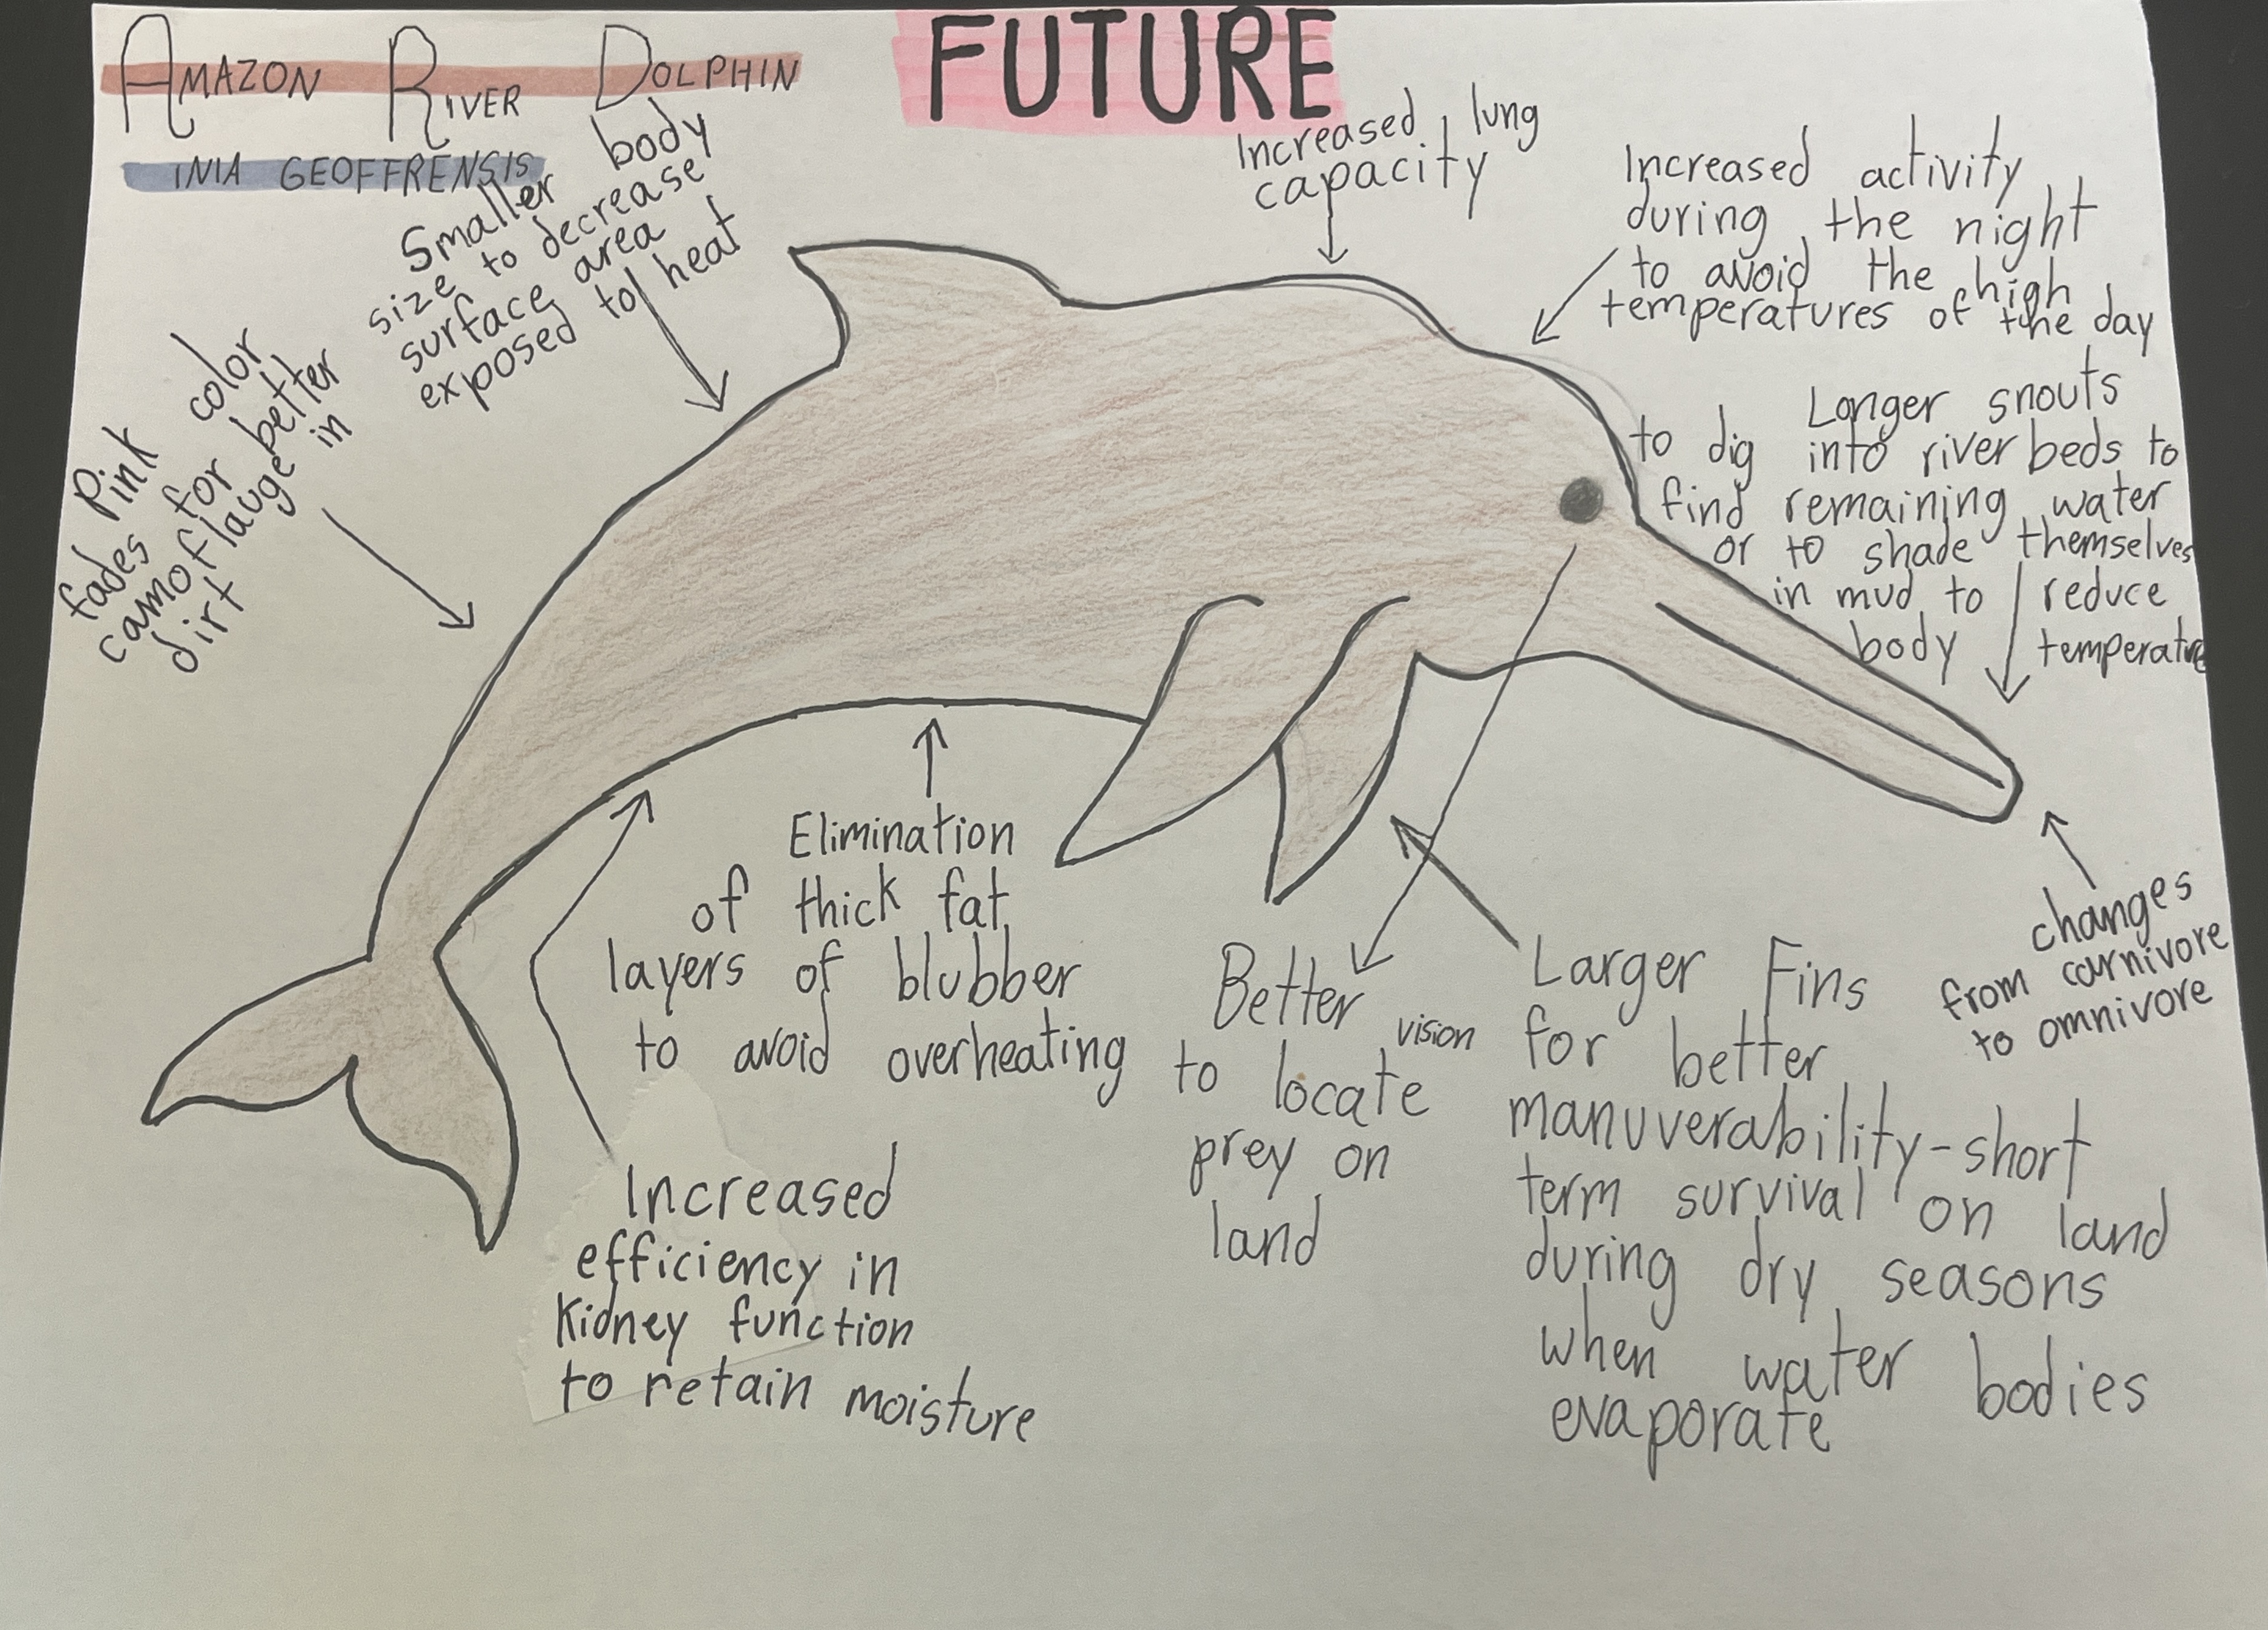 AMAZON RIVER DOLPHIN
INIA GEOFFRENSIS
FUTURE
Smaller body
size to decrease
surface area
exposed to heat
Pink color
fades for better
camoflauge in
dirt
Increased lung
capacity
Increased activity
during the night
to avoid the high
temperatures of the day
Longer snouts
to dig into river beds to
find remaining water
or to shade themselves
in mud to reduce
body temperature
changes
from carnivore
to omnivore
Elimination
of thick fat
layers of blubber
to avoid overheating
Increased
efficiency in
kidney function
to retain moisture
Better vision
to locate
prey on
land
Larger Fins
for better
manuverability-short
term survival on land
during dry seasons
when water bodies
evaporate